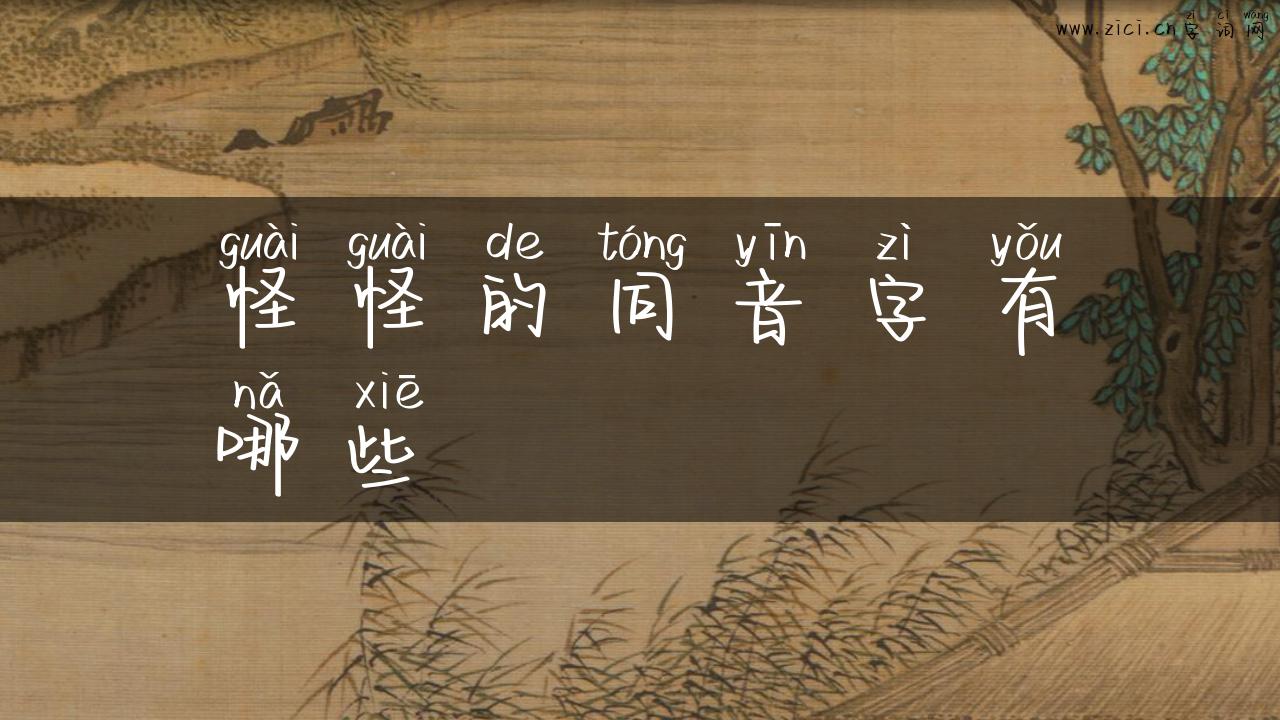 zì cí wǎng
www.zici.cn字词网
guài guài de tóng yīn zì yǒu
怪怪的同音字有
nǎ xiē
哪些